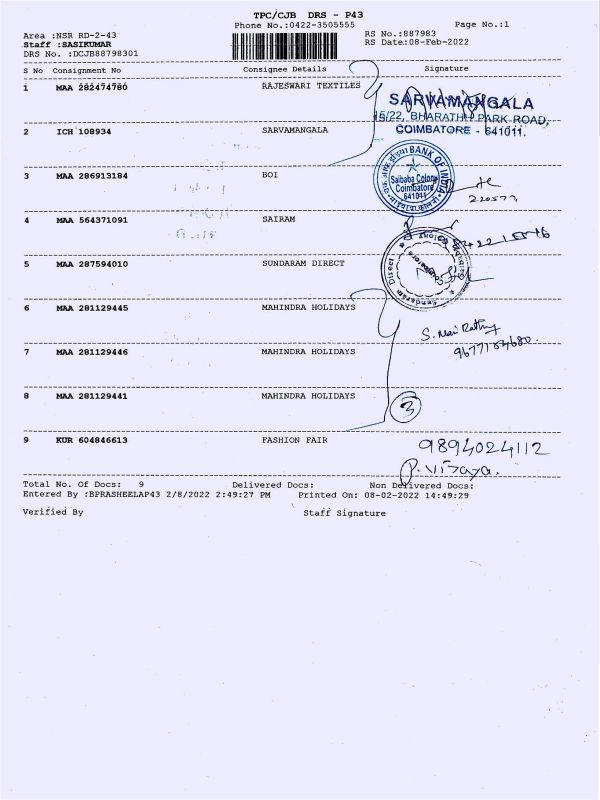 TPC/CJB DRS - P43
Phone No.:0422-3505555 Page No.:1
Area :NSR RD-2-43 RS No.:887983
Staff :SASIKUMAR RS Date:08-Feb-2022
DRS No. :DCJB88798301
S No Consignment No Consignee Details Signature
1 MAA 282474780 RAJESWARI TEXTILES
SARVAMANGALA
15/22, BHARATHI PARK ROAD,
COIMBATORE - 641011.
2 ICH 108934 SARVAMANGALA
BANK OF INDIA
Saibaba Colony
Coimbatore
641011
3 MAA 286913184 BOI
4 MAA 564371091 SAIRAM
Sundaram Direct
5 MAA 287594010 SUNDARAM DIRECT
6 MAA 281129445 MAHINDRA HOLIDAYS
S. Mari Rathy
9677184680.
7 MAA 281129446 MAHINDRA HOLIDAYS
8 MAA 281129441 MAHINDRA HOLIDAYS
3
9 KUR 604846613 FASHION FAIR 9894024112
P. Vijaya.
Total No. Of Docs: 9 Delivered Docs: Non Delivered Docs:
Entered By :BPRASHEELAP43 2/8/2022 2:49:27 PM Printed On: 08-02-2022 14:49:29
Verified By Staff Signature